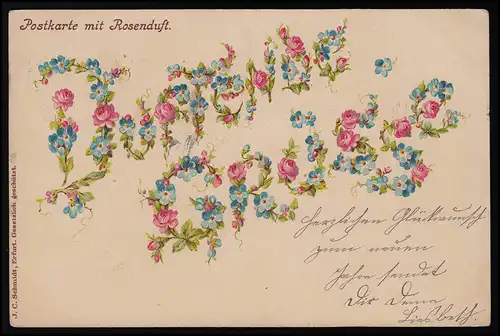 Postkarte mit Rosenduft.
J. C. Schmidt, Erfurt. Gesetzlich geschützt.
Herzlichen Glückwunsch
zum neuen
Jahre sendet
Dir Deine
Liesbeth.